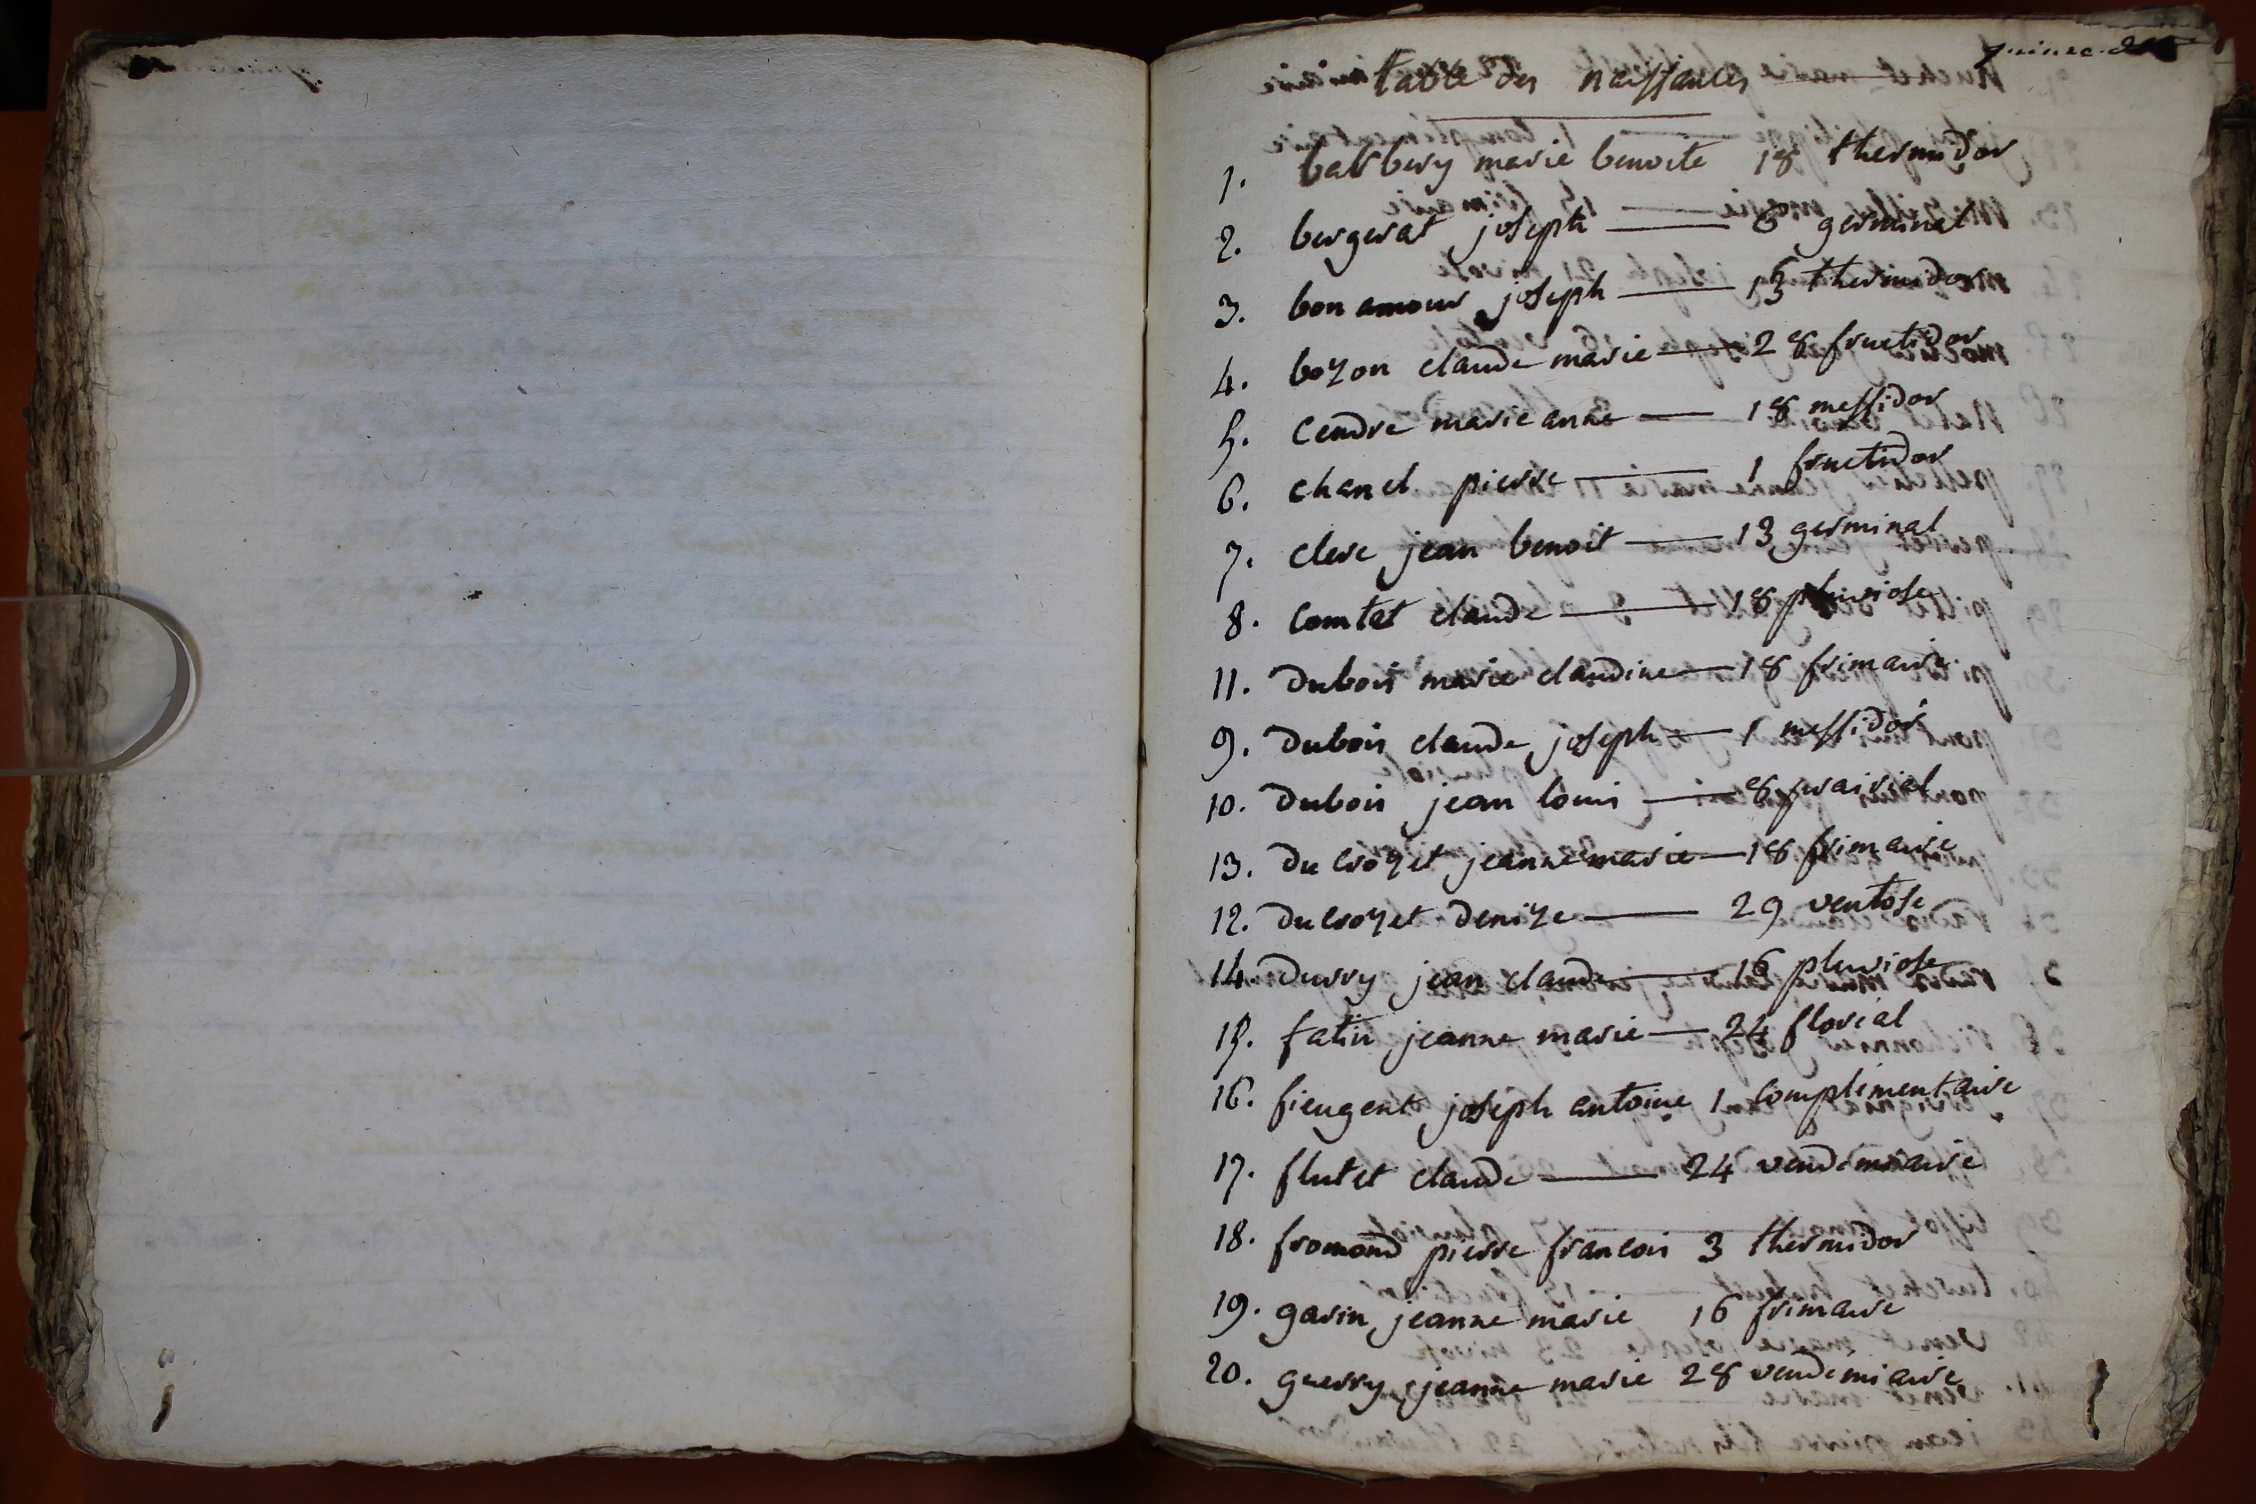 quinze
table des naissances
1. balsbery marie benoite 18 thermidor
2. bergerat joseph — 6 germinal
3. bon amour joseph — 13 thermidor
4. bozon claude marie — 28 fructidor
5. Cendre marie anne — 18 messidor
6. chanel pierre — 1 fructidor
7. clerc jean benoit — 13 germinal
8. Comtet claude — 18 pluviose
11. Dubois marie claudine — 18 frimaire
9. Dubois claude joseph — 1 messidor
10. Dubois jean louis — 8 prairial
13. Ducrozet jeanne marie — 18 frimaire
12. Ducrozet Denize — 29 ventose
14. Durry jean claude — 16 pluviose
15. fatin jeanne marie — 24 florial
16. fieugent joseph antoine 1 complimentaire
17. flutet claude — 24 vendemiaire
18. fromond pierre francois 3 thermidor
19. garin jeanne marie 16 frimaire
20. guerry jeanne marie 28 vendemiaire